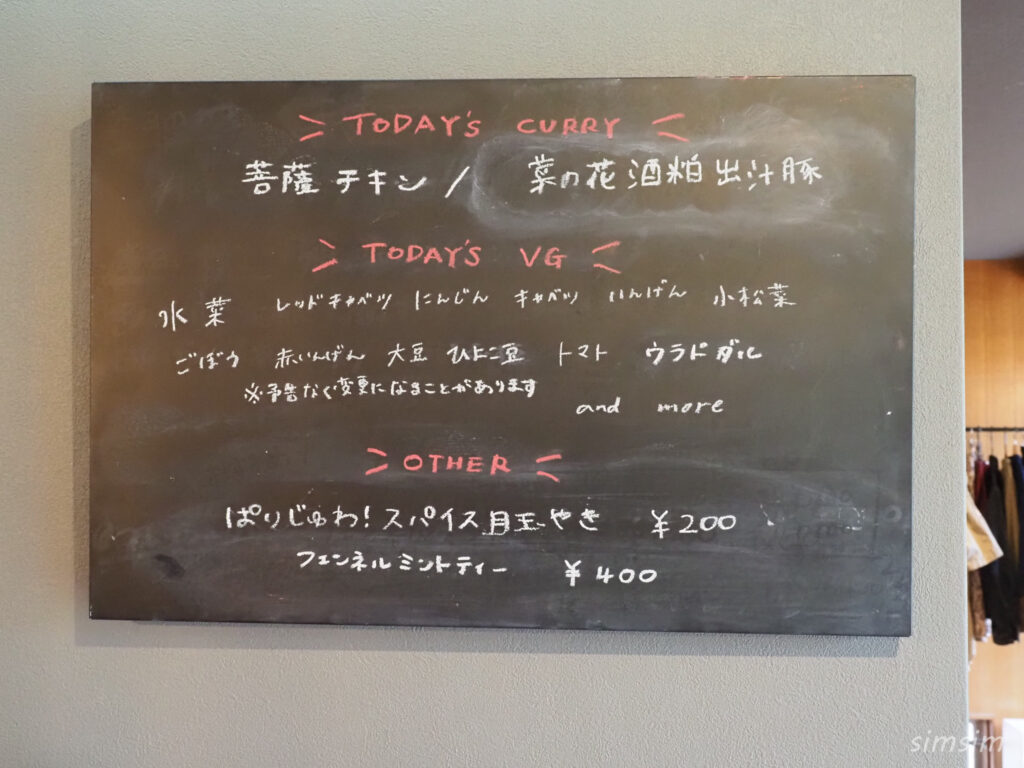 TODAY'S CURRY
菩薩チキン / 菜の花酒粕出汁豚
TODAY'S VG
水菜 レッドキャベツ にんじん キャベツ いんげん 小松菜
ごぼう 赤いんげん 大豆 ひよこ豆 トマト ウラドダル
※予告なく変更になることがあります
and more
OTHER
ぱりじゅわ!スパイス目玉やき ¥200
フェンネルミントティー ¥400
simsim